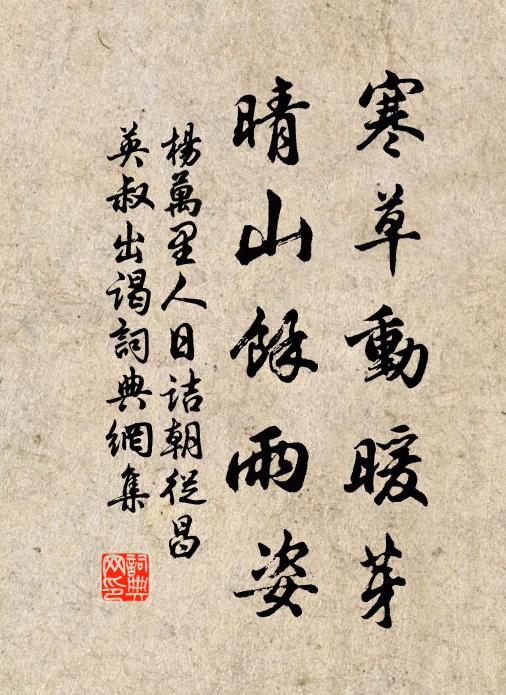 寒草動暖芽
晴山餘雨姿
楊萬里人日詰朝從昌
英叔出謁詞典網集
詞典網印